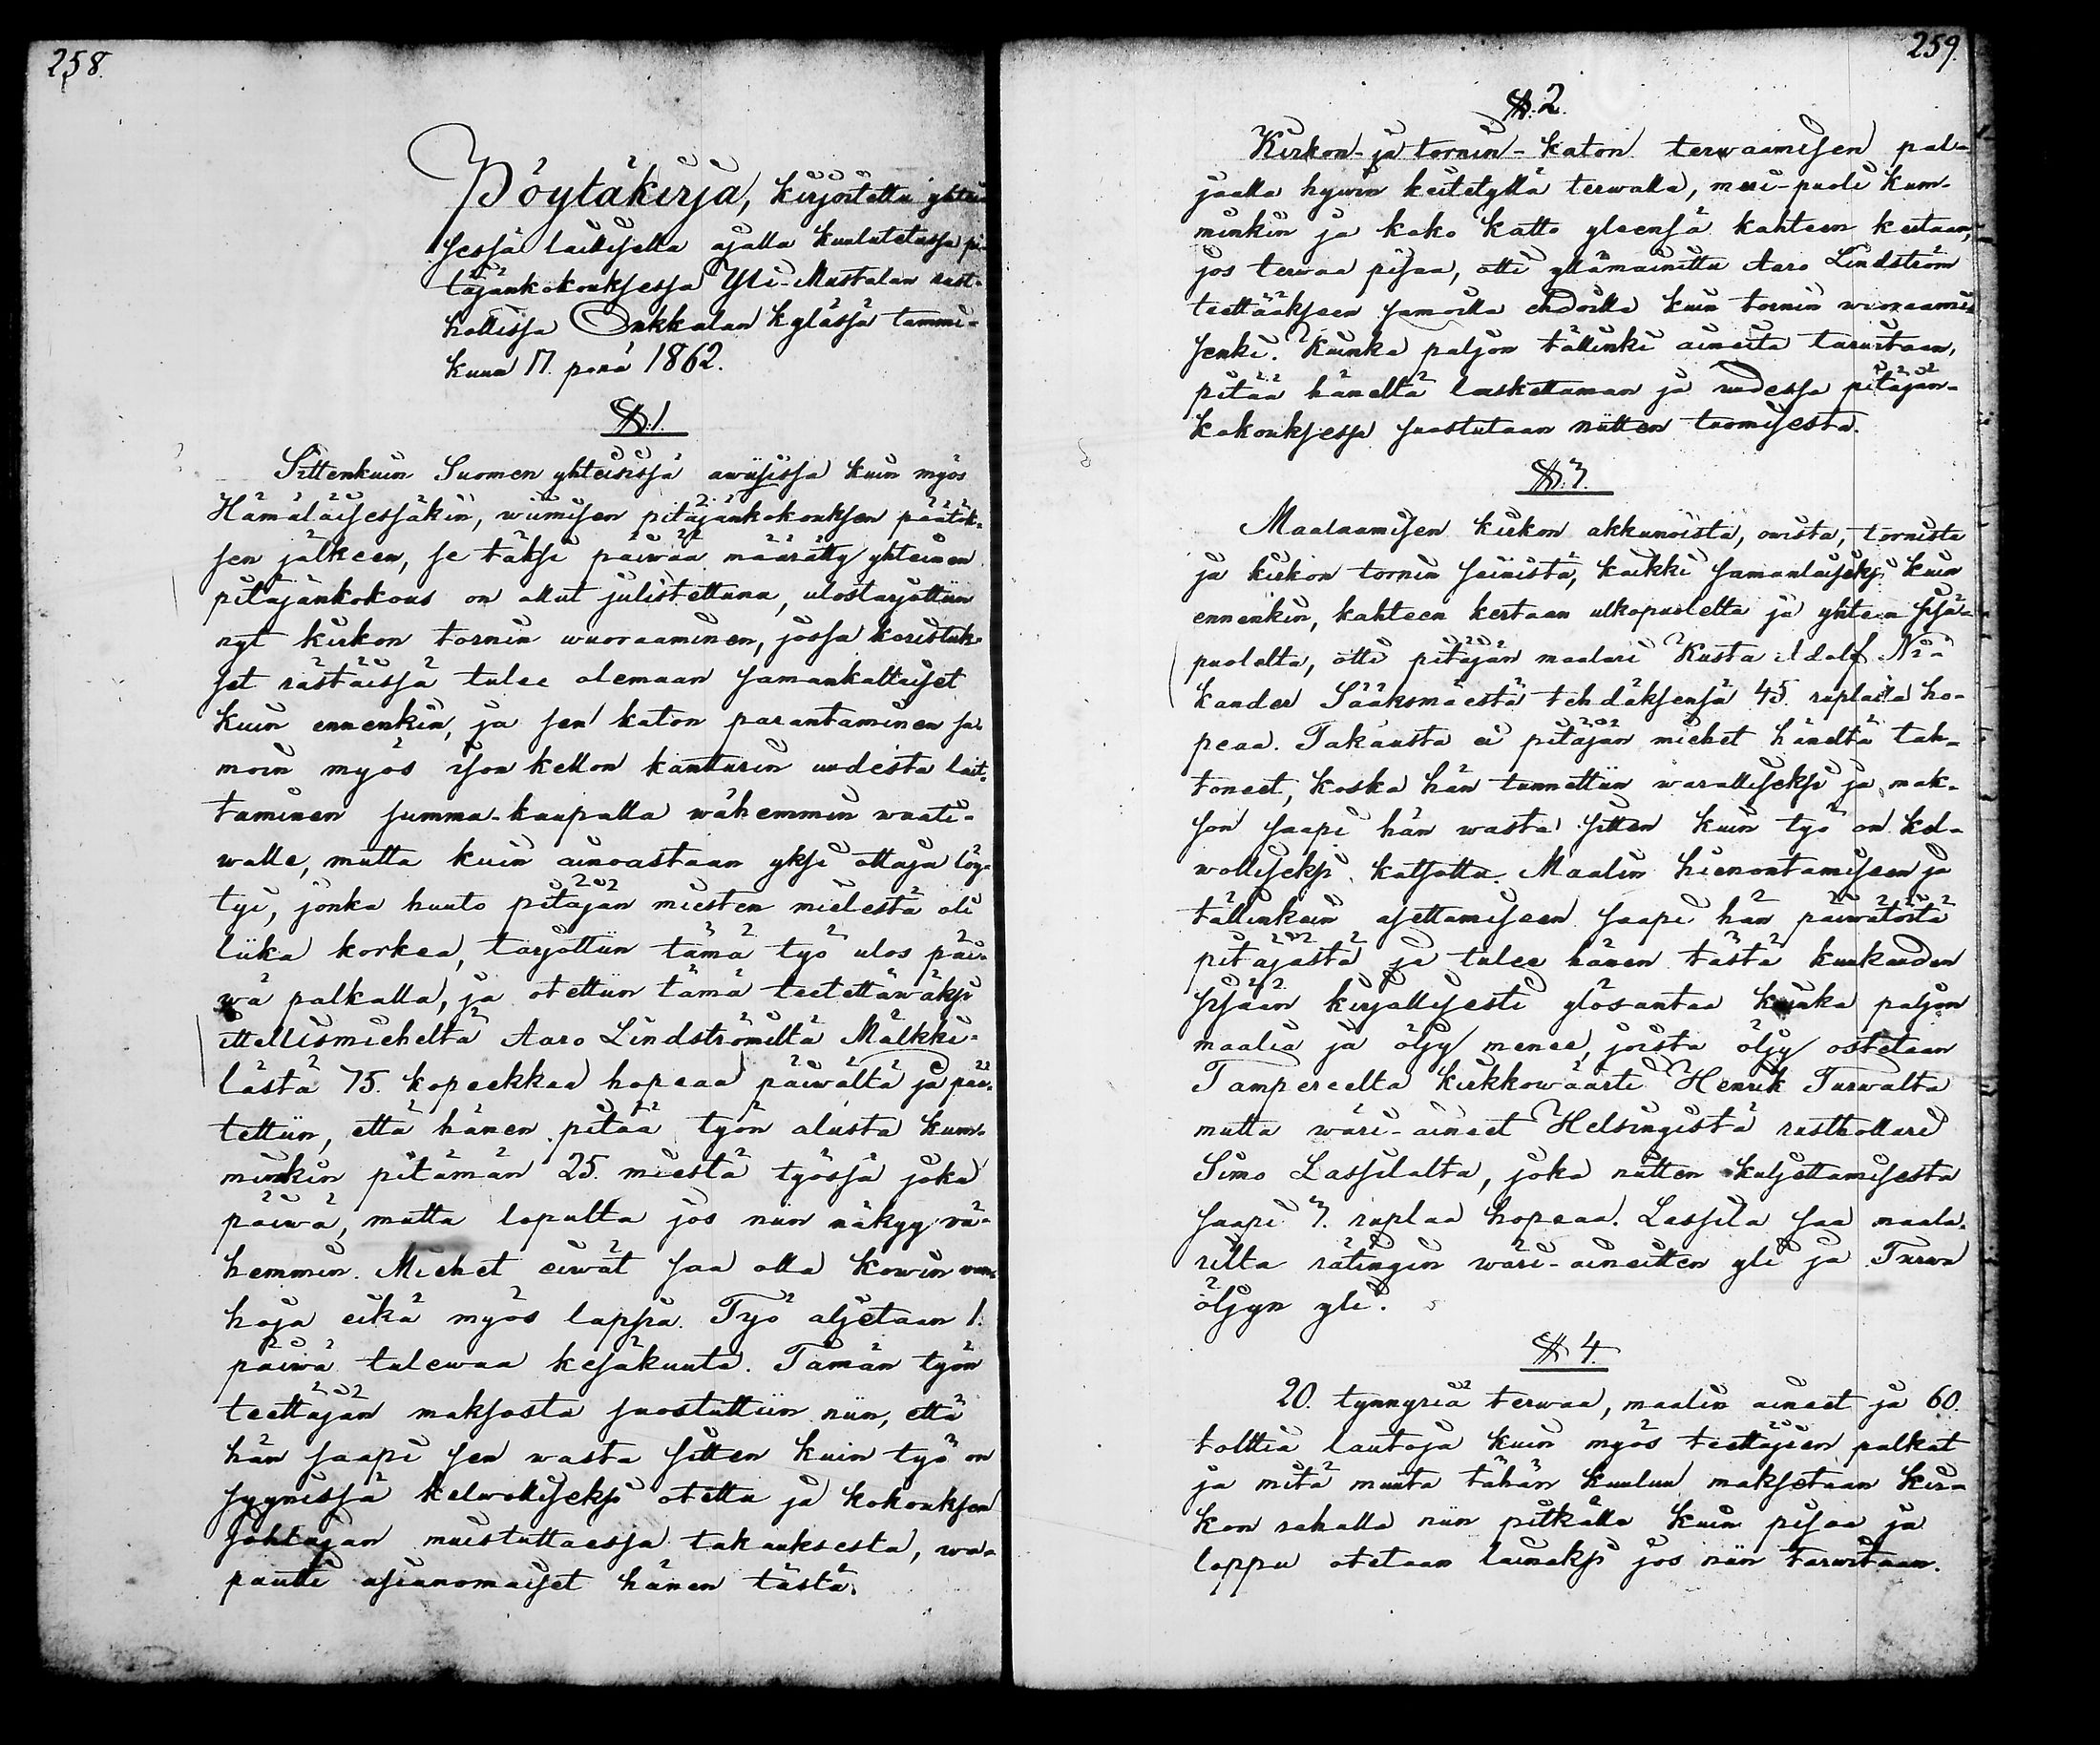 258.
Pöytäkirja, kirjoitettu yhtei-
sessä laillisella ajalla kuulutetussa pi-
täjänkokouksessa Yli-Mustalan rust-
hollissa Onkkalan kylässä tammi-
kuun 17. p:nä 1862.
§. 1.
Sittenkuin Suomen yhteisissä awiisissa kuin myös
Hämäläisessäkin, wiimisen pitäjänkokouksen päätök-
sen jälkeen, se täksi päiwää määrätty yhteinen
pitäjänkokous on ollut julistettuna, ulostarjottiin
nyt kirkon tornin wuoraaminen, jossa koristuk-
set rästäissä tulee olemaan samankaltaiset
kuin ennenkin, ja sen katon parantaminen sa-
moin myös ison kellon kanturin uudesta lait-
taminen summa-kaupalla wähemmin waati-
walle, mutta kuin ainoastaan yksi ottaja löy-
tyi, jonka huuto pitäjän miesten mielestä oli
liika korkea, tarjottiin tämä työ ulos päi-
wä palkalla, ja otettiin tämä teetettäwäksi
ittellismieheltä Aaro Lindströmiltä Mälkki-
lästä 75. kopeekkaa hopeaa päiwältä ja pää-
tettiin, että hänen pitää työn alusta kum-
minkin pitämän 25. miestä työssä joka
päiwä, mutta lopulta jos niin näkyy wä-
hemmin. Miehet eiwät saa olla kowin wan-
hoja eikä myös lapsia. Työ aljetaan 1.
päiwä tulewaa kesäkuuta. Tämän työn
teettäjän maksosta suostuttiin niin, että
hän saapi sen wasta sitten kuin työ on
syynissä kelwolliseksi otettu ja kokouksen
johtajan muistuttaessa takauksesta, wa-
pautti asianomaiset hänen tästä.
259.
§. 2.
Kirkon- ja tornin-katon terwaamisen pal-
jaalla hywin keitetyllä terwalla, meri-puoli kum-
minkin ja koko katto yleensä kahteen kertaan,
jos terwaa piisaa, otti yllämainittu Aaro Lindström
teettääkseen samoilla ehdoilla kuin tornin wuoraami-
senki. Kuinka paljon tällinki aineita tarwitaan,
pitää häneltä laskettaman ja uudessa pitäjän-
kokouksessa suostutaan niitten tuomisesta.
§. 3.
Maalaamisen kirkon akkunoista, owista, tornista
ja kirkon tornin seinistä, kaikki samanlaiseksi kuin
ennenkin, kahteen kertaan ulkopuolelta ja yhteen sisä-
puolelta, otti pitäjän maalari Kusta Adolf Ni-
kander Sääksmäestä tehdäksensä 45. ruplasta ho-
peaa. Takausta ei pitäjän miehet häneltä tah-
toneet, koska hän tunnettiin waralliseksi ja mak-
son saapi hän wasta sitten kuin työ on kel-
wolliseksi katsottu. Maalin hienontamiseen ja
tällinkein asettamiseen saapi hän päiwätöitä
pitäjästä ja tulee hänen tästä kuukauden
sisään kirjallisesti ylösantaa kuinka paljon
maalia ja öljy menee, joista öljy ostetaan
Tampereelta kirkkowäärti Henrik Turwalta
mutta wäri-aineet Helsingistä rusthollari
Simo Lassilalta, joka niitten kuljettamisesta
saapi 7. ruplaa hopeaa. Lassila saa maala-
rilta rätingin wäri-aineitten yli ja Turwa
öljyn yli.
§ 4.
20. tynnyriä terwaa, maalin aineet ja 60.
tolttia lautoja kuin myös teettäjien palkat
ja mitä muuta tähän kuuluu maksetaan kir-
kon rahalla niin pitkälle kuin piisaa ja
loppu otetaan lainaksi jos niin tarwitaan.